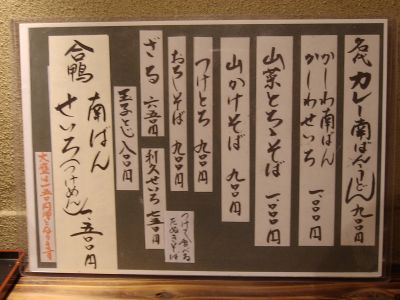 名代 カレー南ばん(うどん) 九〇〇円
かしわ南ばん
かしわせいろ 一、〇〇〇円
山菜とろろそば 一、〇〇〇円
山かけそば 九〇〇円
つけとろ 九〇〇円
おろしそば 九〇〇円
ざる 六五〇円
利久せいろ 七五〇円
玉子とじ 八〇〇円
合鴨 南ばん
せいろ(つけめん) 一、五〇〇円
大盛は一五〇円増となります